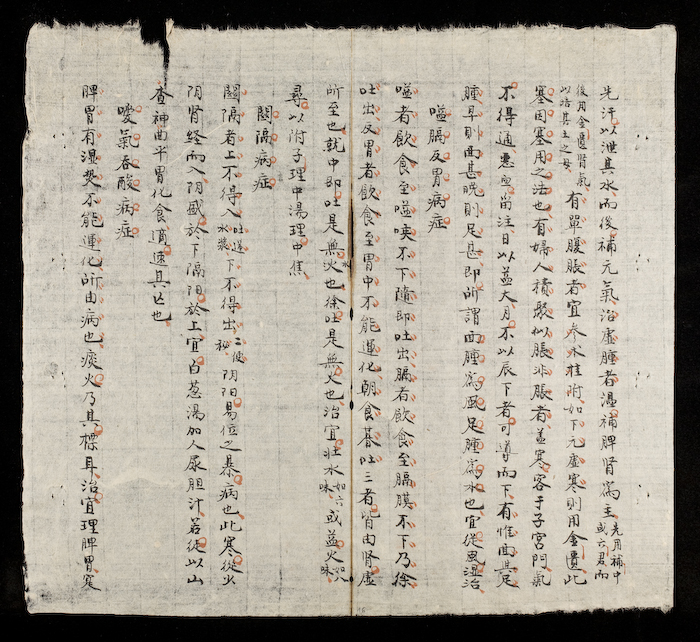 先汗以泄其水而後補元氣治虛腫者溫補脾腎為主先用補中或六君而
後用金匱腎氣以培其土之母有單腹脹者宜參朮桂附如下元虛寒則用金匱此
塞因塞用之法也有婦人積聚似脹非脹者並寒客于子宮門氣
不得通惡血當注日以益大月不以辰下者可導而下有惟面其足
腫早則面甚晚則足甚即所謂面腫為風足腫為水也宜從風湿治
嗌膈反胃病症
嗌者飲食至嗌喉不下隨即吐出膈者飲食至膈膜不下乃徐
吐出反胃者飲食至胃中不能運化朝食暮吐三者皆由腎虛
所至也就中即吐是無水也徐吐是無火也治宜壯水如六味或益火如八味
尋以附子理中湯理中焦
關隔病症
關隔者上不得入吐逆水漿下不得出二便秘阴阳易位之暴病也此寒從少
阴腎經而入阴盛於下隔阳於上宜白葱湯加人尿胆汁若徒以山
查神曲平胃化食適速其亡也
噯氣吞酸病症
脾胃有湿熱不能運化所由病也痰火乃其標耳治宜理脾胃寒